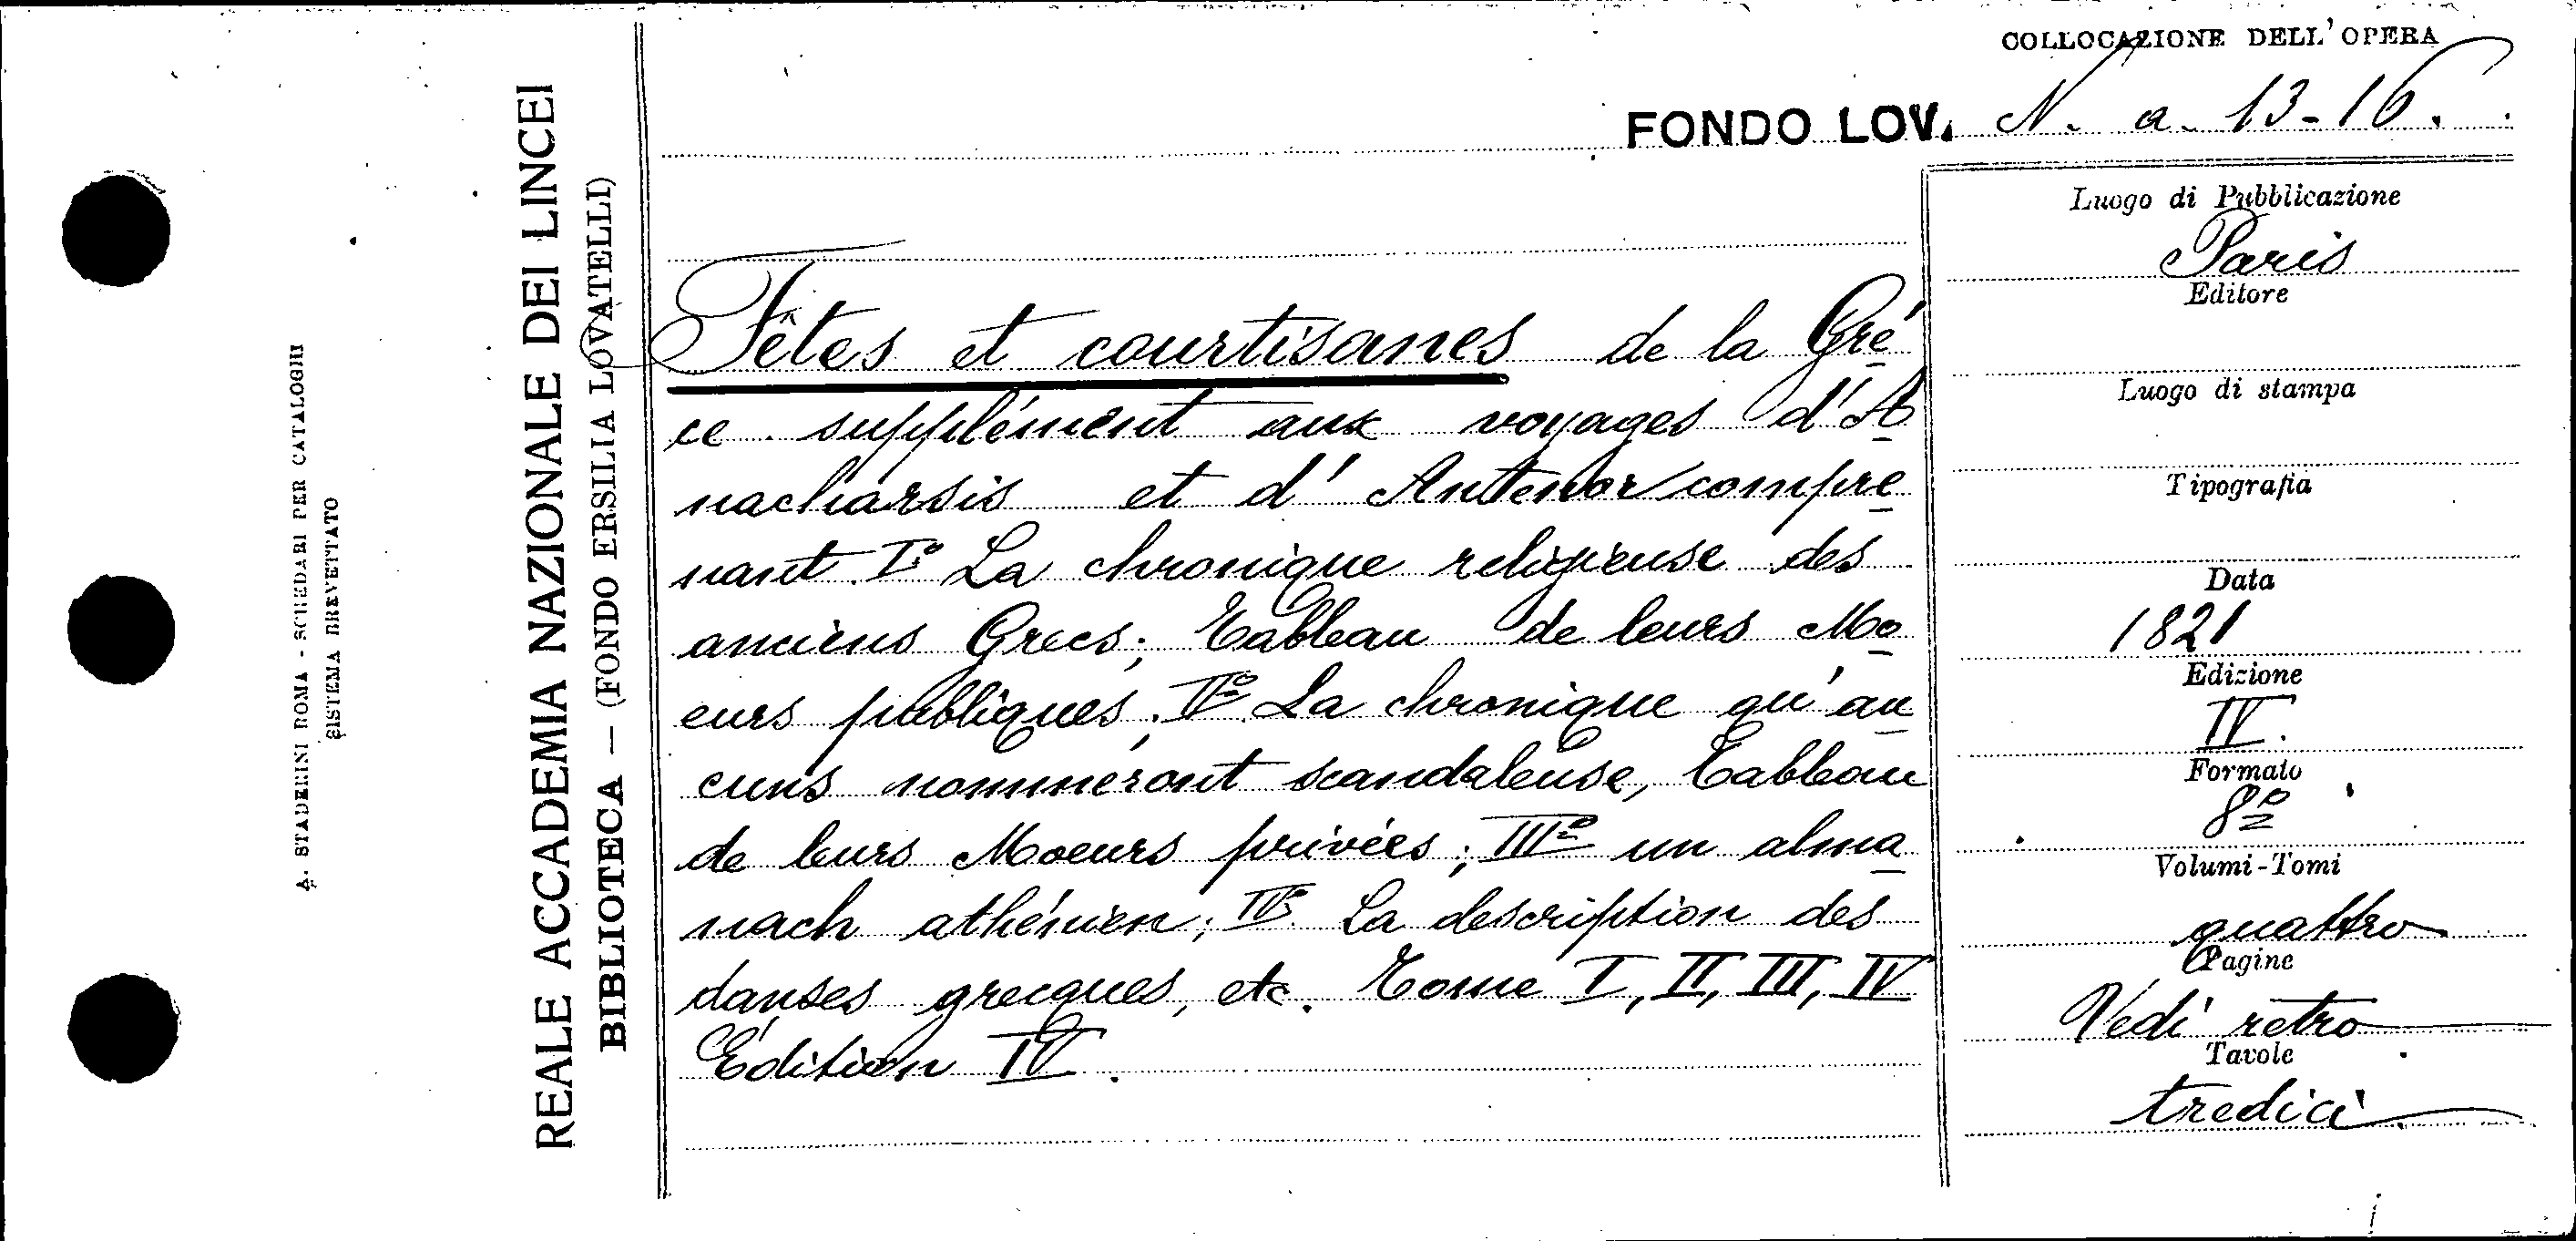 COLLOCAZIONE DELL'OPERA
FONDO LOV. N. a. 13-16.
A. STADERINI ROMA - SCHEDARI PER CATALOGHI
SISTEMA BREVETTATO
REALE ACCADEMIA NAZIONALE DEI LINCEI
BIBLIOTECA — (FONDO ERSILIA LOVATELLI)
Fêtes et courtisanes de la Gré
ce supplément aux voyages d'A
nacharsis et d'Antenor compre
nant I° La chronique religieuse des
anciens Grecs; Tableau de leurs Mo
eurs publiques; II° La chronique qu'au
cuns nommeront scandaleuse, Tableau
de leurs Moeurs privées; III° un alma
nach athénien; IV° La description des
danses grecques, etc. Tome I, II, III, IV
Édition IV.
Luogo di Pubblicazione
Paris
Editore
Luogo di stampa
Tipografia
Data
1821
Edizione
IV.
Formato
8°
Volumi-Tomi
quattro
Pagine
Vedi retro
Tavole
tredici